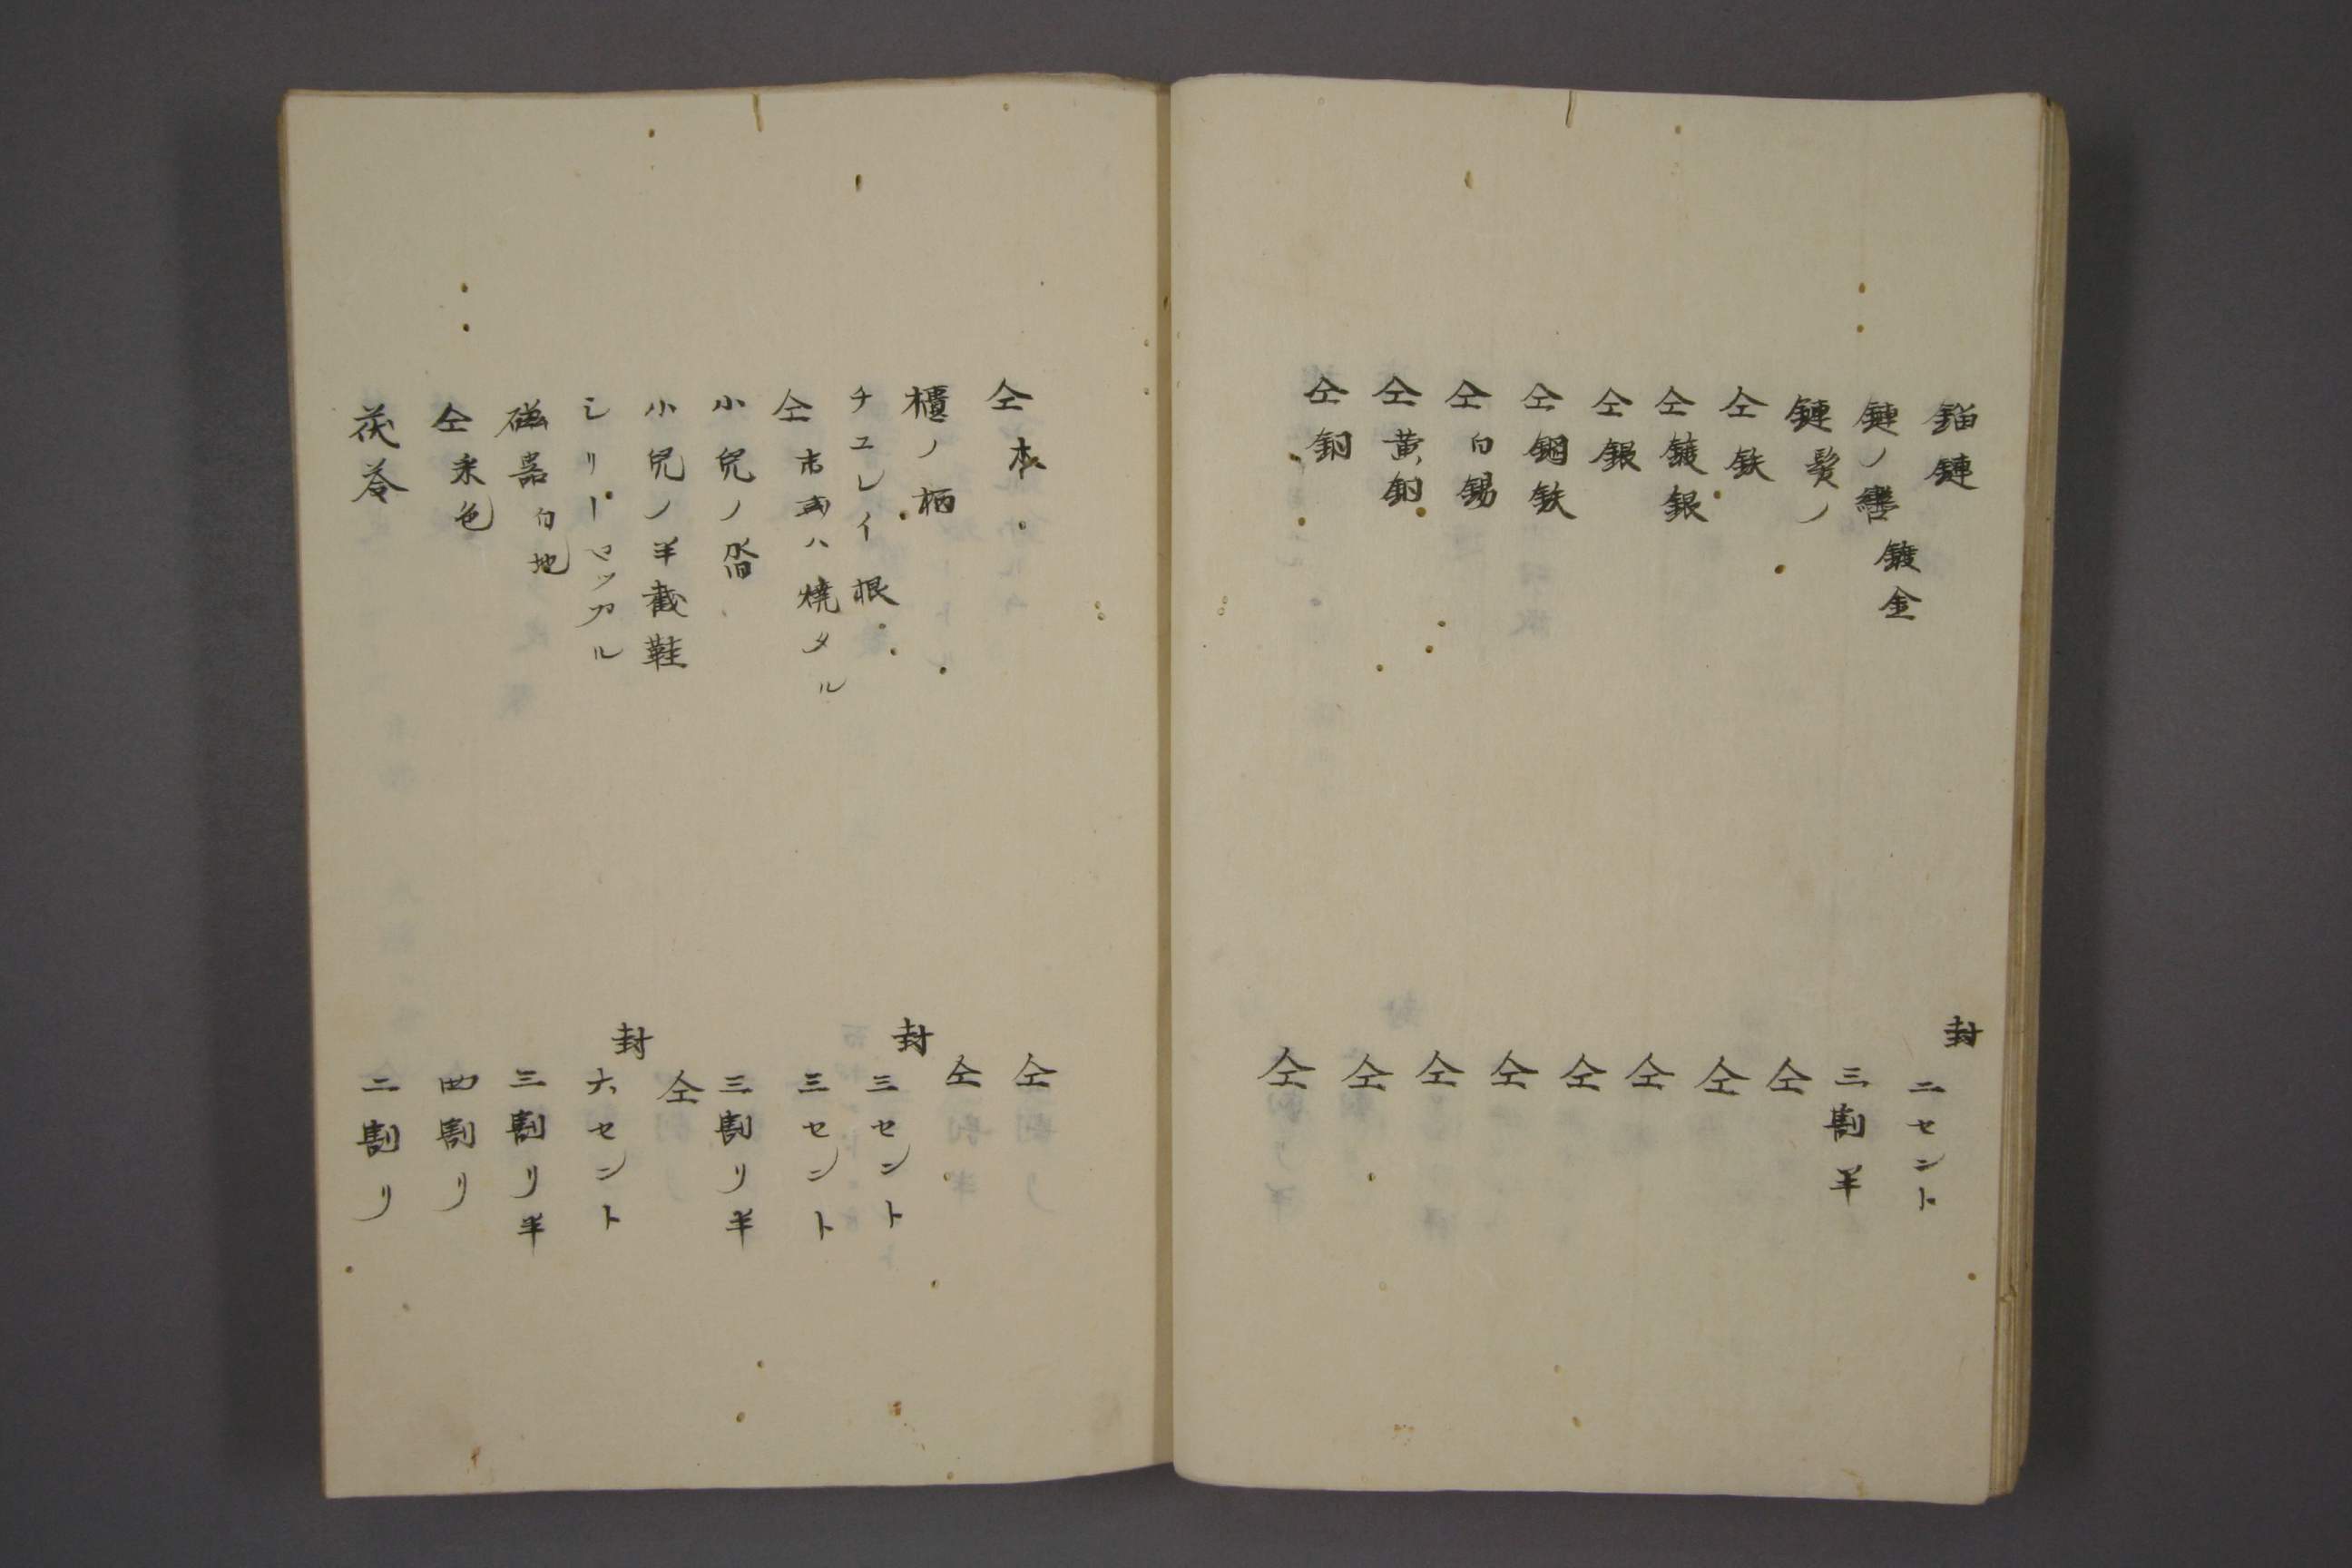 錨鏈 封 二セント
鏈ノ 鍍金 三割半
鏈髪ノ 仝
仝鉄 仝
仝鍍銀 仝
仝銀 仝
仝鋼鉄 仝
仝白錫 仝
仝黄銅 仝
仝銅 仝
仝木 仝
櫃ノ柄 仝
チユレイ根 封 三セント
仝 或ハ焼タル 三セント
小児ノ沓 三割リ半
小児ノ半截鞋 仝
シリーロツカル 封 六セント
磁器白地 三割リ半
仝釆色 四割リ
茯苓 二割リ